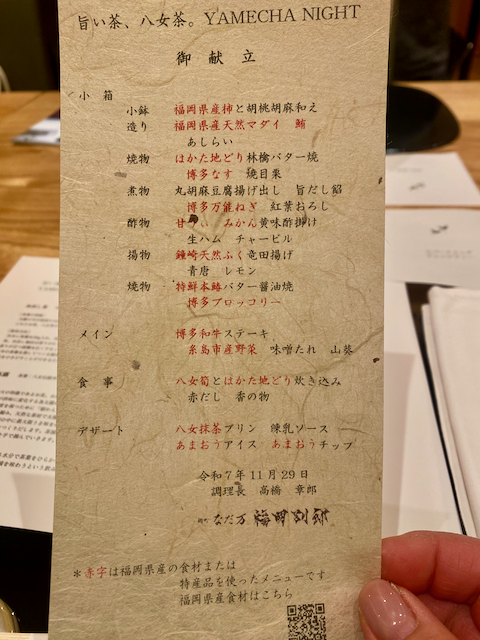 旨い茶、八女茶。YAMECHA NIGHT
御献立
小箱
小鉢 福岡県産柿と胡桃胡麻和え
造り 福岡県産天然マダイ 鮪
あしらい
焼物 はかた地どり林檎バター焼
博多なす 焼目栗
煮物 丸胡麻豆腐揚げ出し 旨だし餡
博多万能ねぎ 紅葉おろし
酢物 甘うぃ みかん黄味酢掛け
生ハム チャービル
揚物 鐘崎天然ふく竜田揚げ
青唐 レモン
焼物 特鮮本鰆バター醤油焼
博多ブロッコリー
メイン 博多和牛ステーキ
糸島市産野菜 味噌たれ 山葵
食事 八女筍とはかた地どり炊き込み
赤だし 香の物
デザート 八女抹茶プリン 練乳ソース
あまおうアイス あまおうチップ
令和7年11月29日
調理長 高橋 章郎
なだ万 福岡別邸
*赤字は福岡県産の食材または
特産品を使ったメニューです
福岡県産食材はこちら